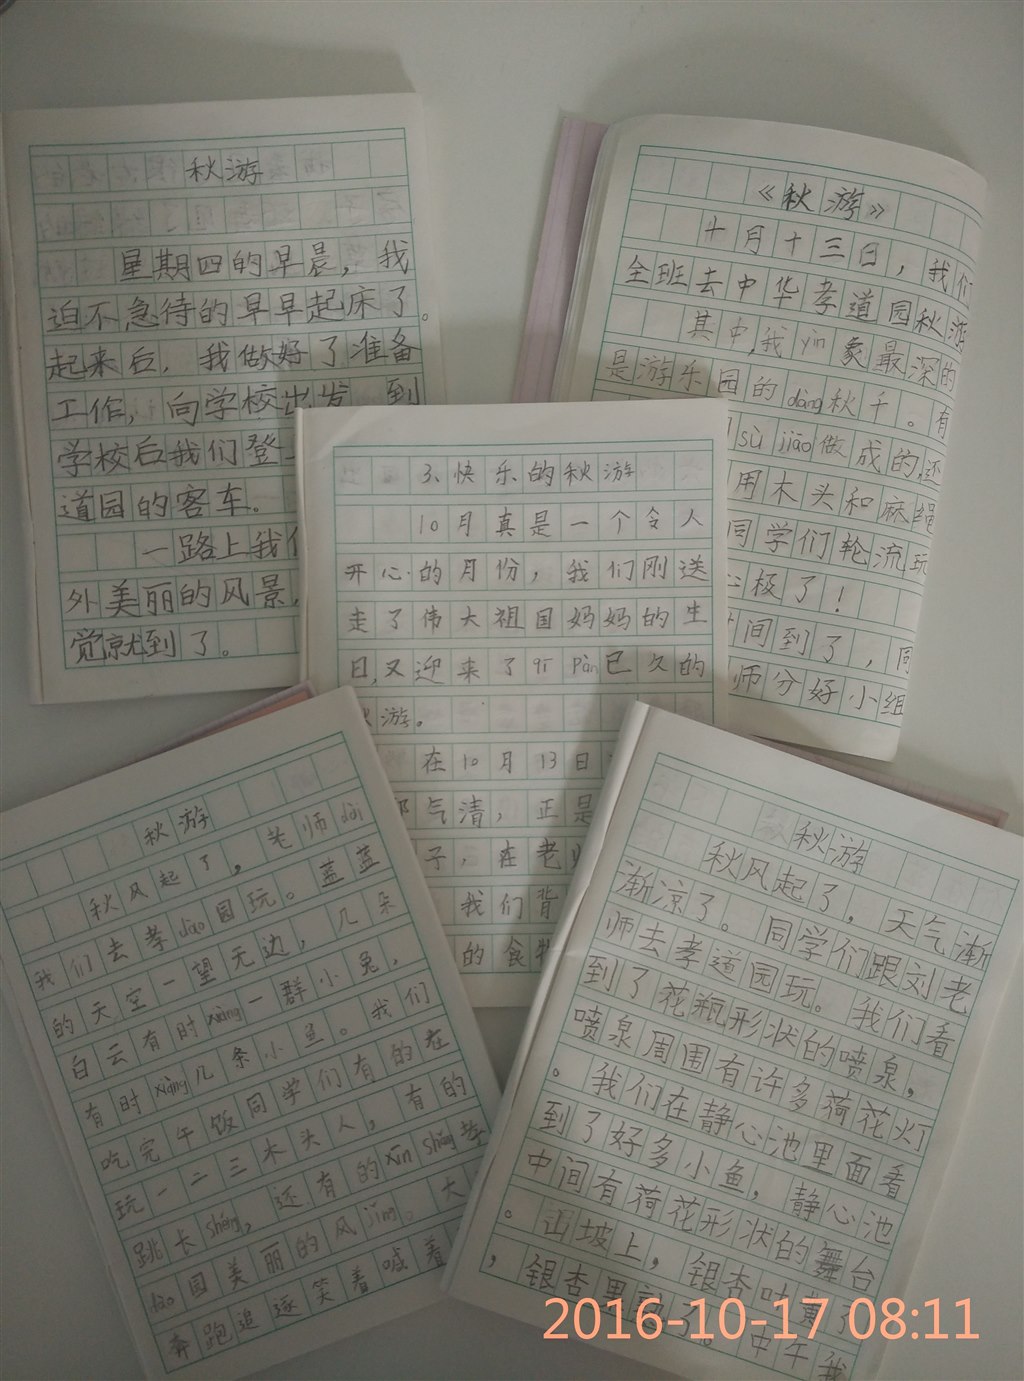 秋游
星期四的早晨，我
迫不急待的早早起床了。
起来后，我做好了准备
工作，向学校出发 到
学校后我们登
道园的客车。
一路上我
外美丽的风景，
觉就到了。
《秋游》
十月十三日，我们
全班去中华孝道园秋游
其中，我yìn象最深的
是游乐园的dàng秋千。有
sù jiāo做成的，还
用木头和麻绳
同学们轮流玩
极了！
间到了，同
师分好小组
3、快乐的秋游
10月真是一个令人
开心的月份，我们刚送
走了伟大祖国妈妈的生
日，又迎来了qī pàn已久的
秋游。
在10月13日
气清，正是
子，在老
我们背
的食物
秋游
秋风起了。老师dài
我们去孝dào园玩。蓝蓝
的天空一望无边，几朵
白云有时xiàng一群小兔，
有时xiàng几条小鱼。我们
吃完午饭同学们有的在
玩一二三木头人，有的
跳长shéng，还有的xīn shǎng孝
dào园美丽的风jǐng。大
奔跑追逐笑着喊着
秋游
秋风起了，天气渐
渐凉了。同学们跟刘老
师去孝道园玩。我们看
到了花瓶形状的喷泉，
喷泉周围有许多荷花灯
。我们在静心池里面看
到了好多小鱼，静心池
中间有荷花形状的舞台
。山坡上，银杏叶黄
，银杏里 了。中午我
2016-10-17 08:11